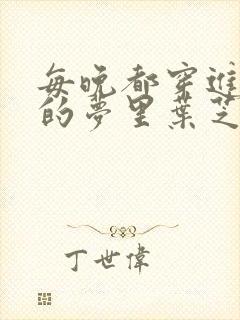 每晚都穿進
的夢里葉芝
丁世偉